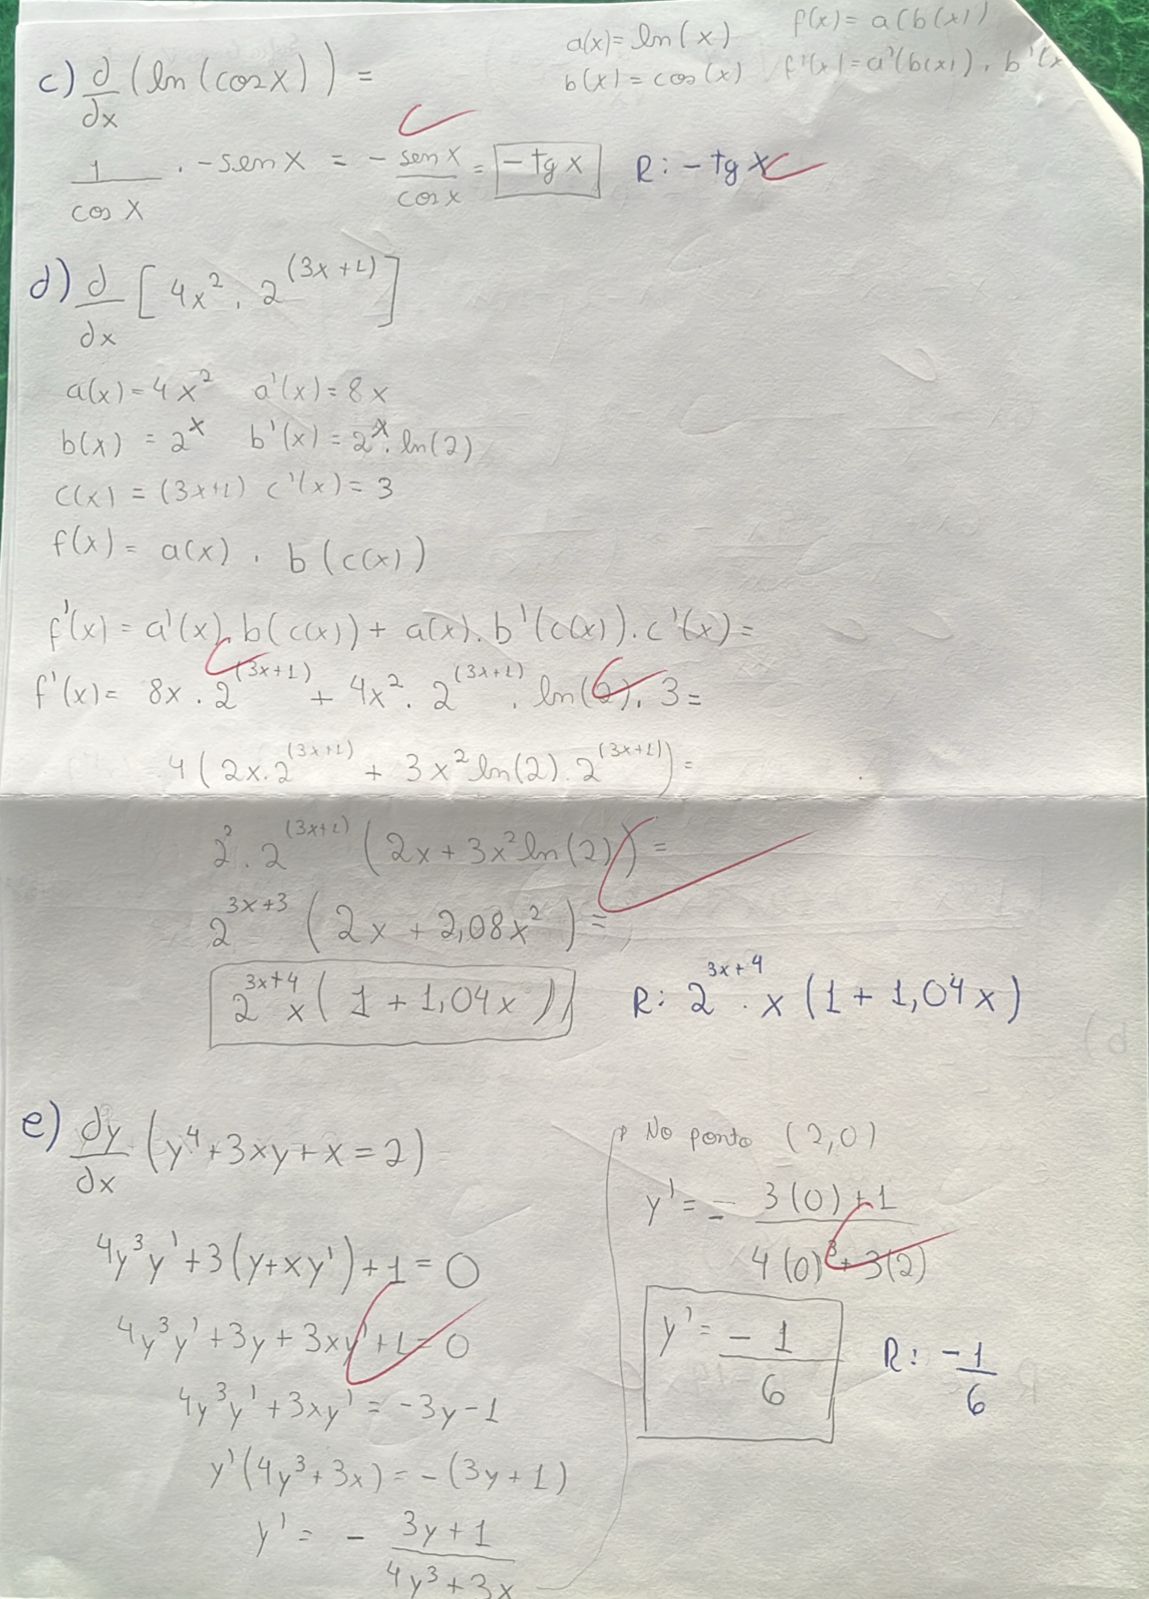 a(x) = ln(x)   f(x) = a(b(x))
b(x) = cos(x)   f'(x) = a'(b(x)) . b'(x
c) d/dx (ln(cos x)) =
1/cos x . -sen x = - sen x/cos x = -tg x   R: -tg x
d) d/dx [4x² . 2^(3x+1)]
a(x) = 4x²   a'(x) = 8x
b(x) = 2^x   b'(x) = 2^x . ln(2)
c(x) = (3x+1)   c'(x) = 3
f(x) = a(x) . b(c(x))
f'(x) = a'(x) . b(c(x)) + a(x) . b'(c(x)) . c'(x) =
f'(x) = 8x . 2^(3x+1) + 4x² . 2^(3x+1) . ln(2) . 3 =
4(2x . 2^(3x+1) + 3x² ln(2) . 2^(3x+1)) =
2² . 2^(3x+1) (2x + 3x² ln(2)) =
2^3x+3 (2x + 2,08x²) =
2^3x+4 x(1 + 1,04x)   R: 2^3x+4 . x(1 + 1,04x)
e) dy/dx (y⁴ + 3xy + x = 2)
4y³y' + 3(y + xy') + 1 = 0
4y³y' + 3y + 3xy' + 1 = 0
4y³y' + 3xy' = -3y - 1
y'(4y³ + 3x) = -(3y + 1)
y' = - 3y + 1/4y³ + 3x
No ponto (2,0)
y' = - 3(0) + 1/4(0)³ + 3(2)
y' = -1/6   R: -1/6